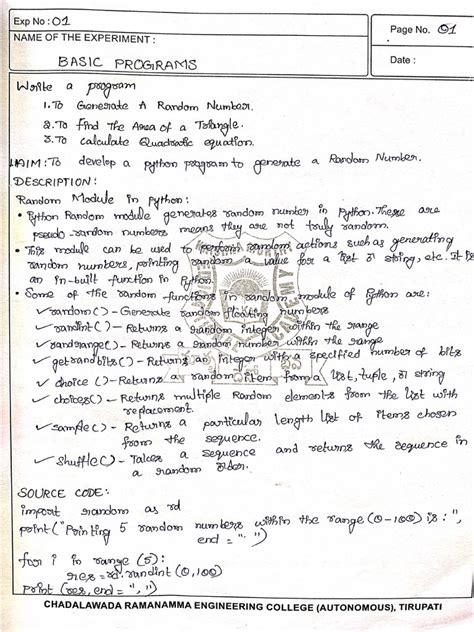 Exp No : 01
Page No. 01
NAME OF THE EXPERIMENT :
BASIC PROGRAMS
Date :
Write a program
1. To Generate A Random Number.
2. To find The Area of a Triangle.
3. To calculate Quadratic equation.
1.AIM : To develop a python program to generate a Random Number.
DESCRIPTION :
Random Module in Python :
• Python Random module generates random number in Python. These are
pseudo-random numbers means they are not truly random.
• This module can be used to perform random actions such as generating
random numbers, printing random a value for a list or string, etc. It is
an in-built function in Python.
• Some of the random functions in random module of Python are:
✓ random() - Generate random floating numbers
✓ randint() - Returns a random integer within the range
✓ randrange() - Returns a random number within the range
✓ getrandbits() - Returns an integer with a specified number of bits
✓ choice() - Returns a random item from a list, tuple, or string
✓ choices() - Returns multiple Random elements from the list with
replacement.
✓ sample() - Returns a particular length list of items chosen
from the sequence.
✓ shuffle() - Takes a sequence and returns the sequence in
a random order.
SOURCE CODE :
import random as rd
print("Printing 5 random numbers within the range (0-100) is : ",
end = " ")
for i in range (5):
res = rd.randint (0,100)
print (res, end = ", ")
CHADALAWADA RAMANAMMA ENGINEERING COLLEGE (AUTONOMOUS), TIRUPATI